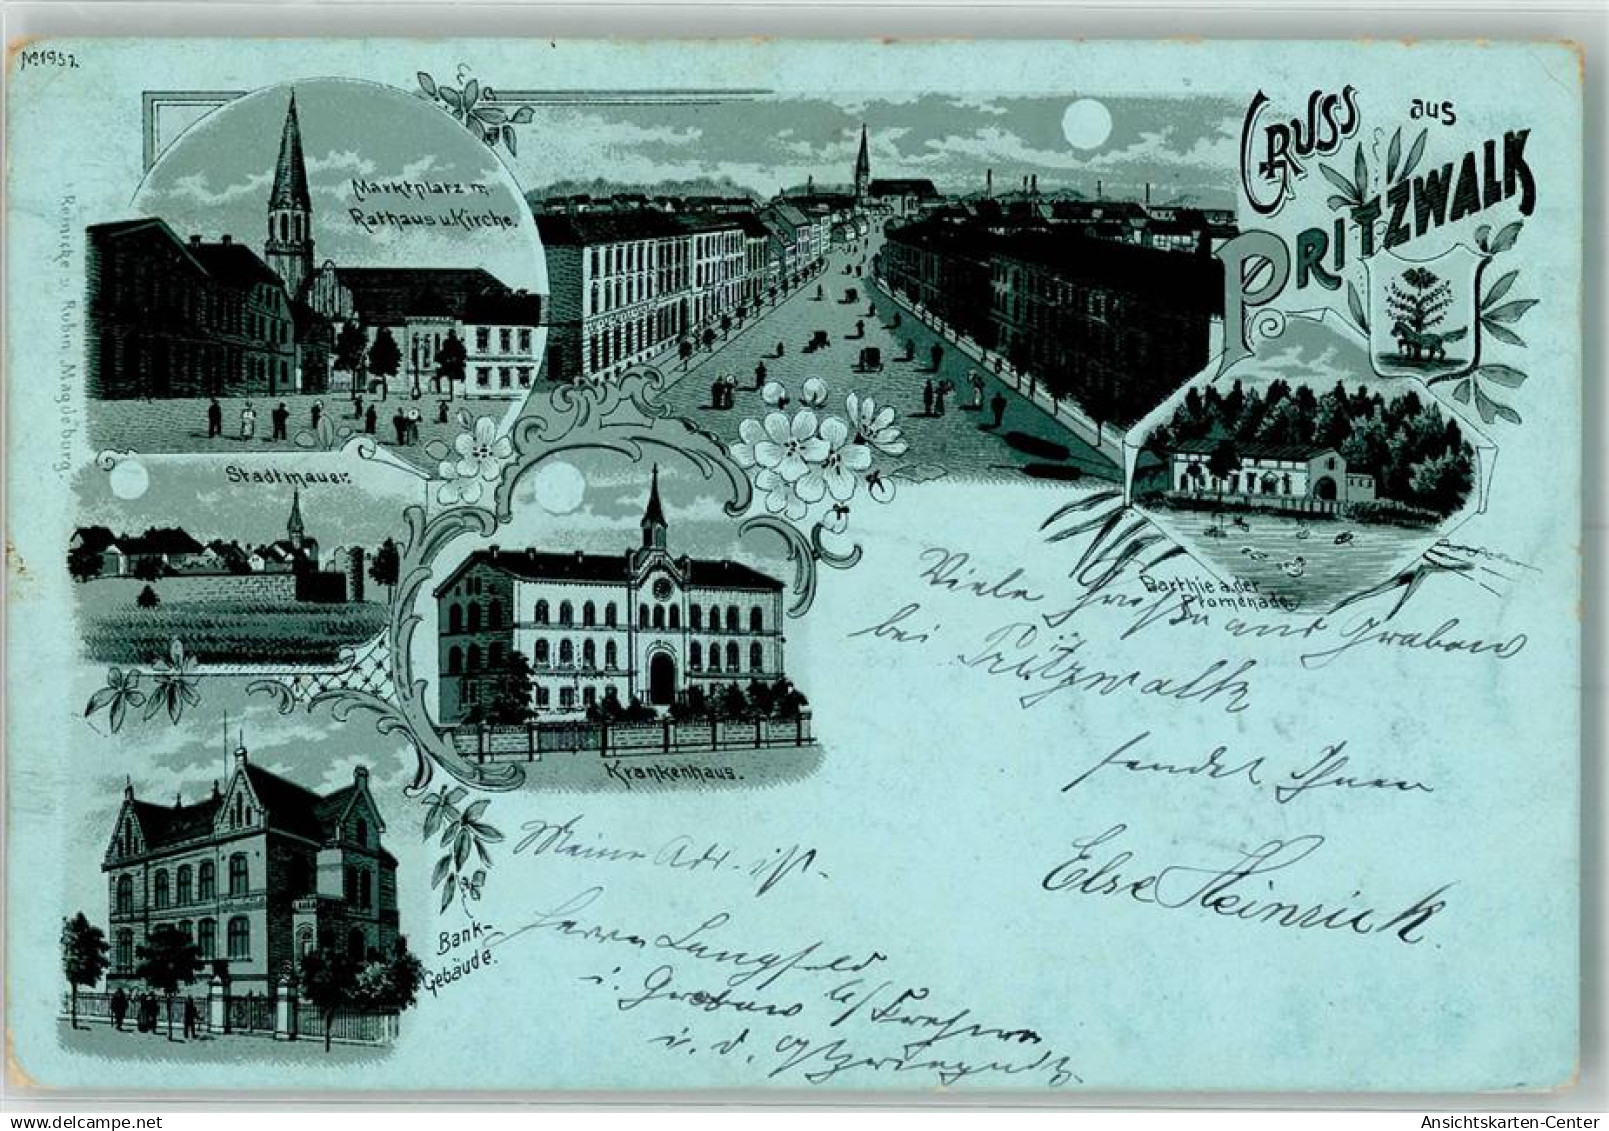 No 1957
Marktplatz m.
Rathaus u. Kirche.
GRUSS aus
PRITZWALK
Stadtmauer.
Parthie a. der
Promenade.
Krankenhaus.
Bank-
Gebäude.
Reinicke u. Rubin, Magdeburg.
Viele Grüße aus Grabow
bei Pritzwalk
sendet Ihnen
Else Heinrich.
Meine Adr. ist.
Herrn Langfeld
i. Grabow b/
i. d.
Ansichtskarten-Center